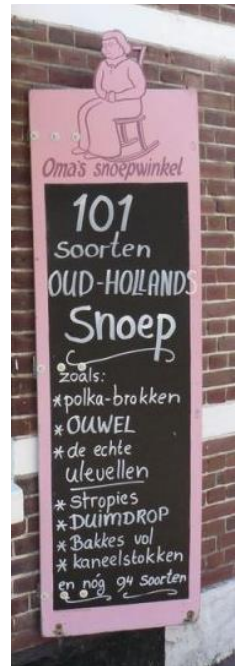 Oma's snoepwinkel
101
soorten
OUD-HOLLANDS
Snoep
zoals:
* polka-brokken
* OUWEL
* de echte
ulevellen
* Stropies
* DUIMDROP
* Bakkes vol
* kaneelstokken
en nóg 94 soorten